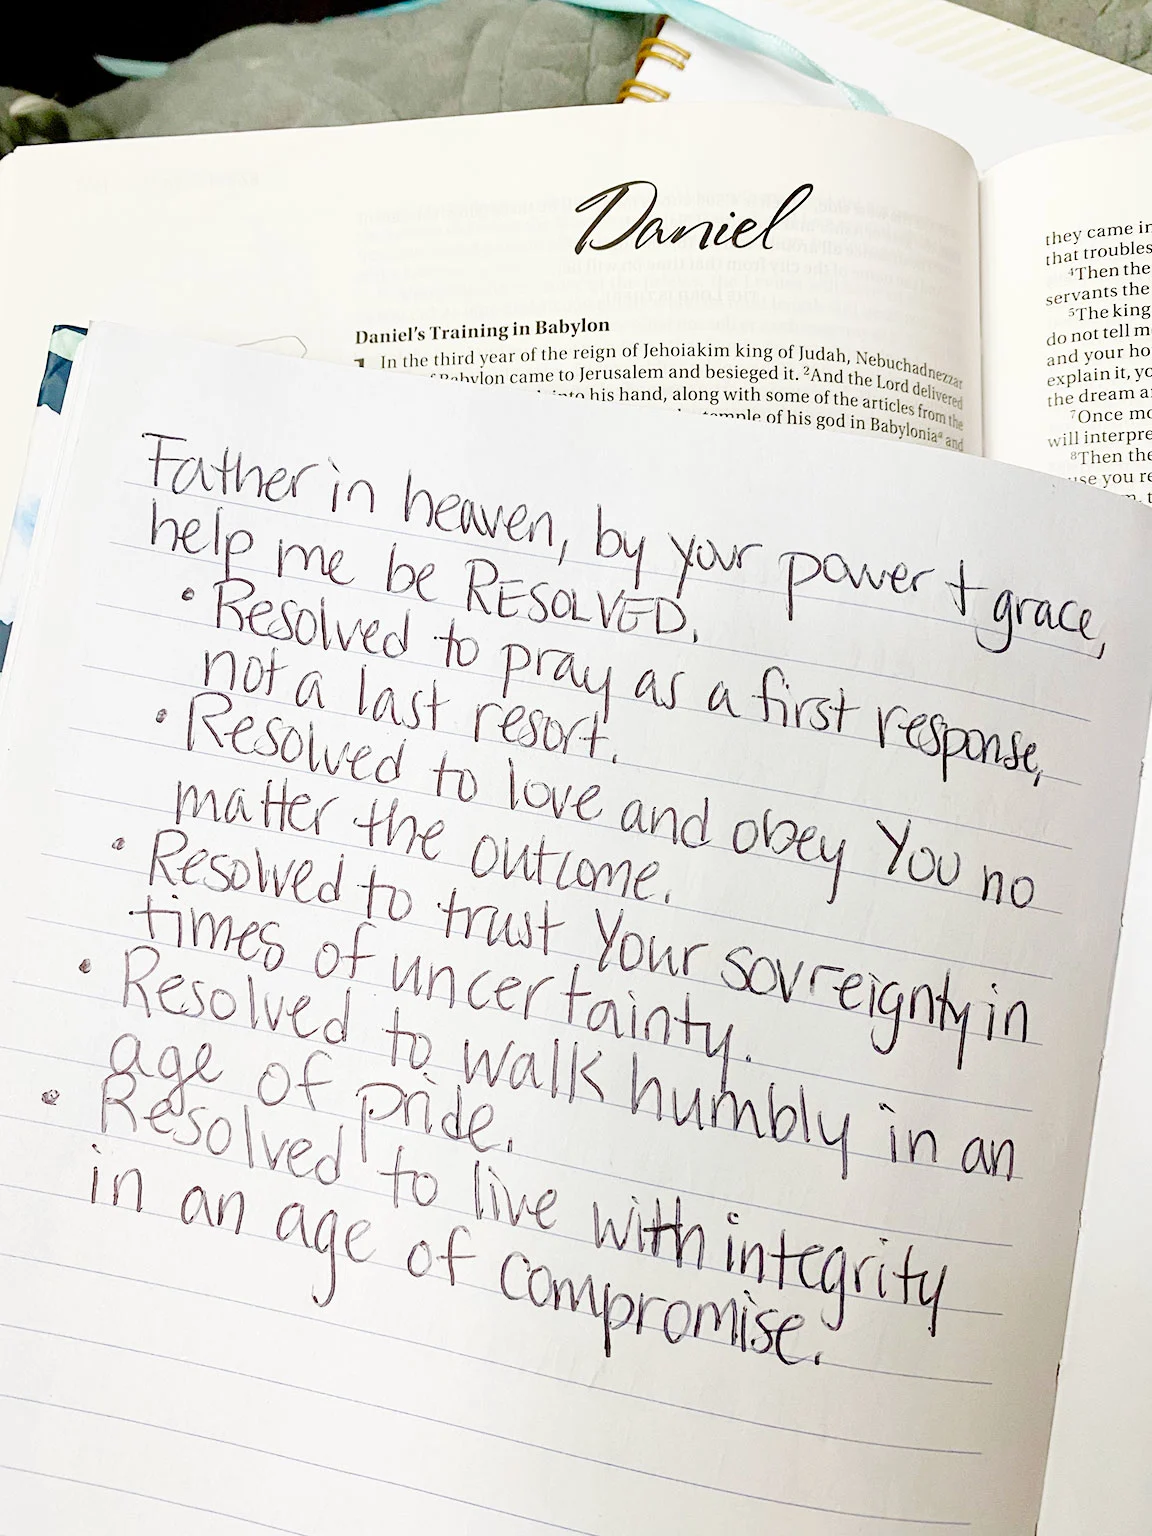 Daniel
Daniel's Training in Babylon
In the third year of the reign of Jehoiakim king of Judah, Nebuchadnezzar
Babylon came to Jerusalem and besieged it. ²And the Lord delivered
into his hand, along with some of the articles from the
temple of his god in Babyloniaᵃ and
they came in
that troubles
⁴Then the
servants the
⁵The king
do not tell me
and your ho
explain it, yo
the dream a
⁷Once mo
will interpre
⁸Then the
use you re
Father in heaven, by your power + grace,
help me be RESOLVED.
• Resolved to pray as a first response,
not a last resort.
• Resolved to love and obey You no
matter the outcome.
• Resolved to trust Your sovreignty in
times of uncertainty.
• Resolved to walk humbly in an
age of pride.
• Resolved to live with integrity
in an age of compromise.